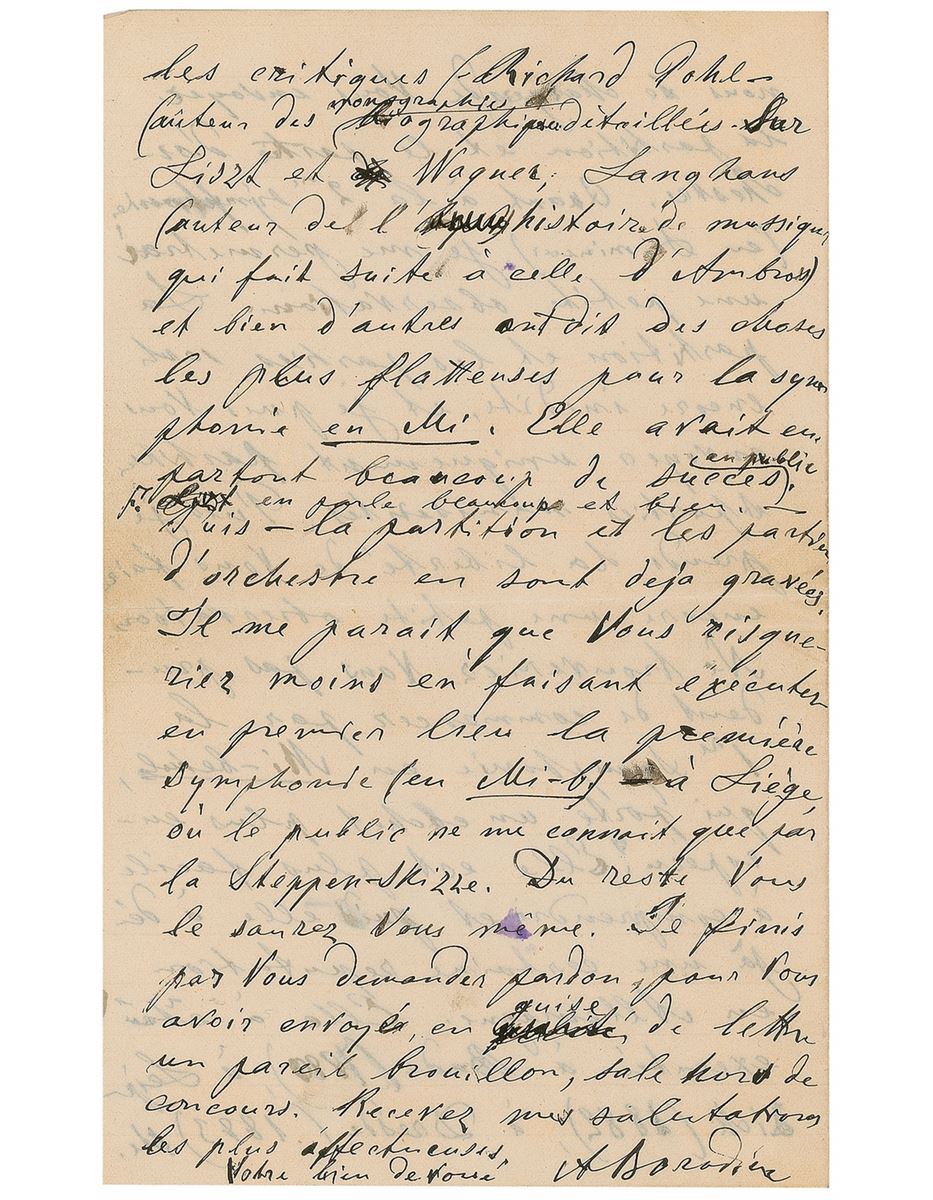 les critiques (- Richard Pohl -
monographies
(auteur des détaillées sur
Liszt et Wagner; Langhans
(auteur de l'histoire de musique
qui fait suite à celle d'Ambros)
et bien d'autres ont dit des choses
les plus flatteuses pour la sym
phonie en Mi. Elle avait eu
en public
partout beaucoup de succès).
F. Liszt en parle beaucoup et bien. —
Puis — la partition et les parties
d'orchestre en sont deja gravées.
Il me parait que Vous risque-
riez moins en faisant exécuter
en premier lieu la première
symphonie (en Mi-b) à Liège
où le public ne me connait que par
la Steppen-Skizze. Du reste Vous
le saurez Vous même. Je finis
par Vous demander pardon, pour Vous
guise
avoir envoyé, en de lettre
un pareil brouillon, sale hors de
concours. Recevez mes salutations
les plus affectueuses
Votre bien devoué A Borodine